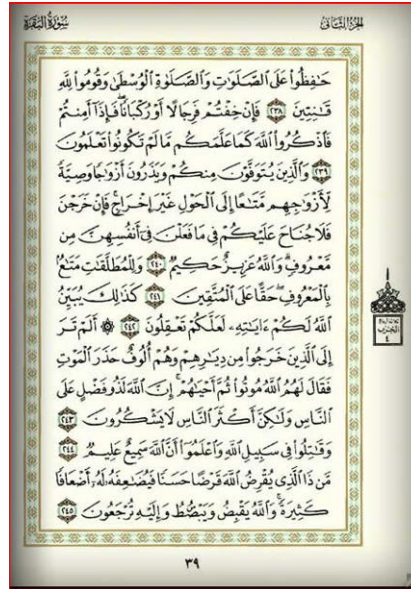 سُورَةُ البَقَرَةِ
الجُزْءُ الثَّانِي
حَٰفِظُوا۟ عَلَى ٱلصَّلَوَٰتِ وَٱلصَّلَوٰةِ ٱلْوُسْطَىٰ وَقُومُوا۟ لِلَّهِ
قَٰنِتِينَ ٢٣٨ فَإِنْ خِفْتُمْ فَرِجَالًا أَوْ رُكْبَانًا فَإِذَآ أَمِنتُمْ
فَٱذْكُرُوا۟ ٱللَّهَ كَمَا عَلَّمَكُم مَّا لَمْ تَكُونُوا۟ تَعْلَمُونَ
٢٣٩ وَٱلَّذِينَ يُتَوَفَّوْنَ مِنكُمْ وَيَذَرُونَ أَزْوَٰجًا وَصِيَّةً
لِّأَزْوَٰجِهِم مَّتَٰعًا إِلَى ٱلْحَوْلِ غَيْرَ إِخْرَاجٍ فَإِنْ خَرَجْنَ
فَلَا جُنَاحَ عَلَيْكُمْ فِى مَا فَعَلْنَ فِىٓ أَنفُسِهِنَّ مِن
مَّعْرُوفٍ وَٱللَّهُ عَزِيزٌ حَكِيمٌ ٢٤٠ وَلِلْمُطَلَّقَٰتِ مَتَٰعٌۢ
بِٱلْمَعْرُوفِ حَقًّا عَلَى ٱلْمُتَّقِينَ ٢٤١ كَذَٰلِكَ يُبَيِّنُ
ٱللَّهُ لَكُمْ ءَايَٰتِهِۦ لَعَلَّكُمْ تَعْقِلُونَ ٢٤٢ ۞ أَلَمْ تَرَ
إِلَى ٱلَّذِينَ خَرَجُوا۟ مِن دِيَٰرِهِمْ وَهُمْ أُلُوفٌ حَذَرَ ٱلْمَوْتِ
فَقَالَ لَهُمُ ٱللَّهُ مُوتُوا۟ ثُمَّ أَحْيَٰهُمْ إِنَّ ٱللَّهَ لَذُو فَضْلٍ عَلَى
ٱلنَّاسِ وَلَٰكِنَّ أَكْثَرَ ٱلنَّاسِ لَا يَشْكُرُونَ ٢٤٣
وَقَٰتِلُوا۟ فِى سَبِيلِ ٱللَّهِ وَٱعْلَمُوٓا۟ أَنَّ ٱللَّهَ سَمِيعٌ عَلِيمٌ ٢٤٤
مَّن ذَا ٱلَّذِى يُقْرِضُ ٱللَّهَ قَرْضًا حَسَنًا فَيُضَٰعِفَهُۥ لَهُۥٓ أَضْعَافًا
كَثِيرَةً وَٱللَّهُ يَقْبِضُ وَيَبْصُۜطُ وَإِلَيْهِ تُرْجَعُونَ ٢٤٥
الحزب
٤
٣٩